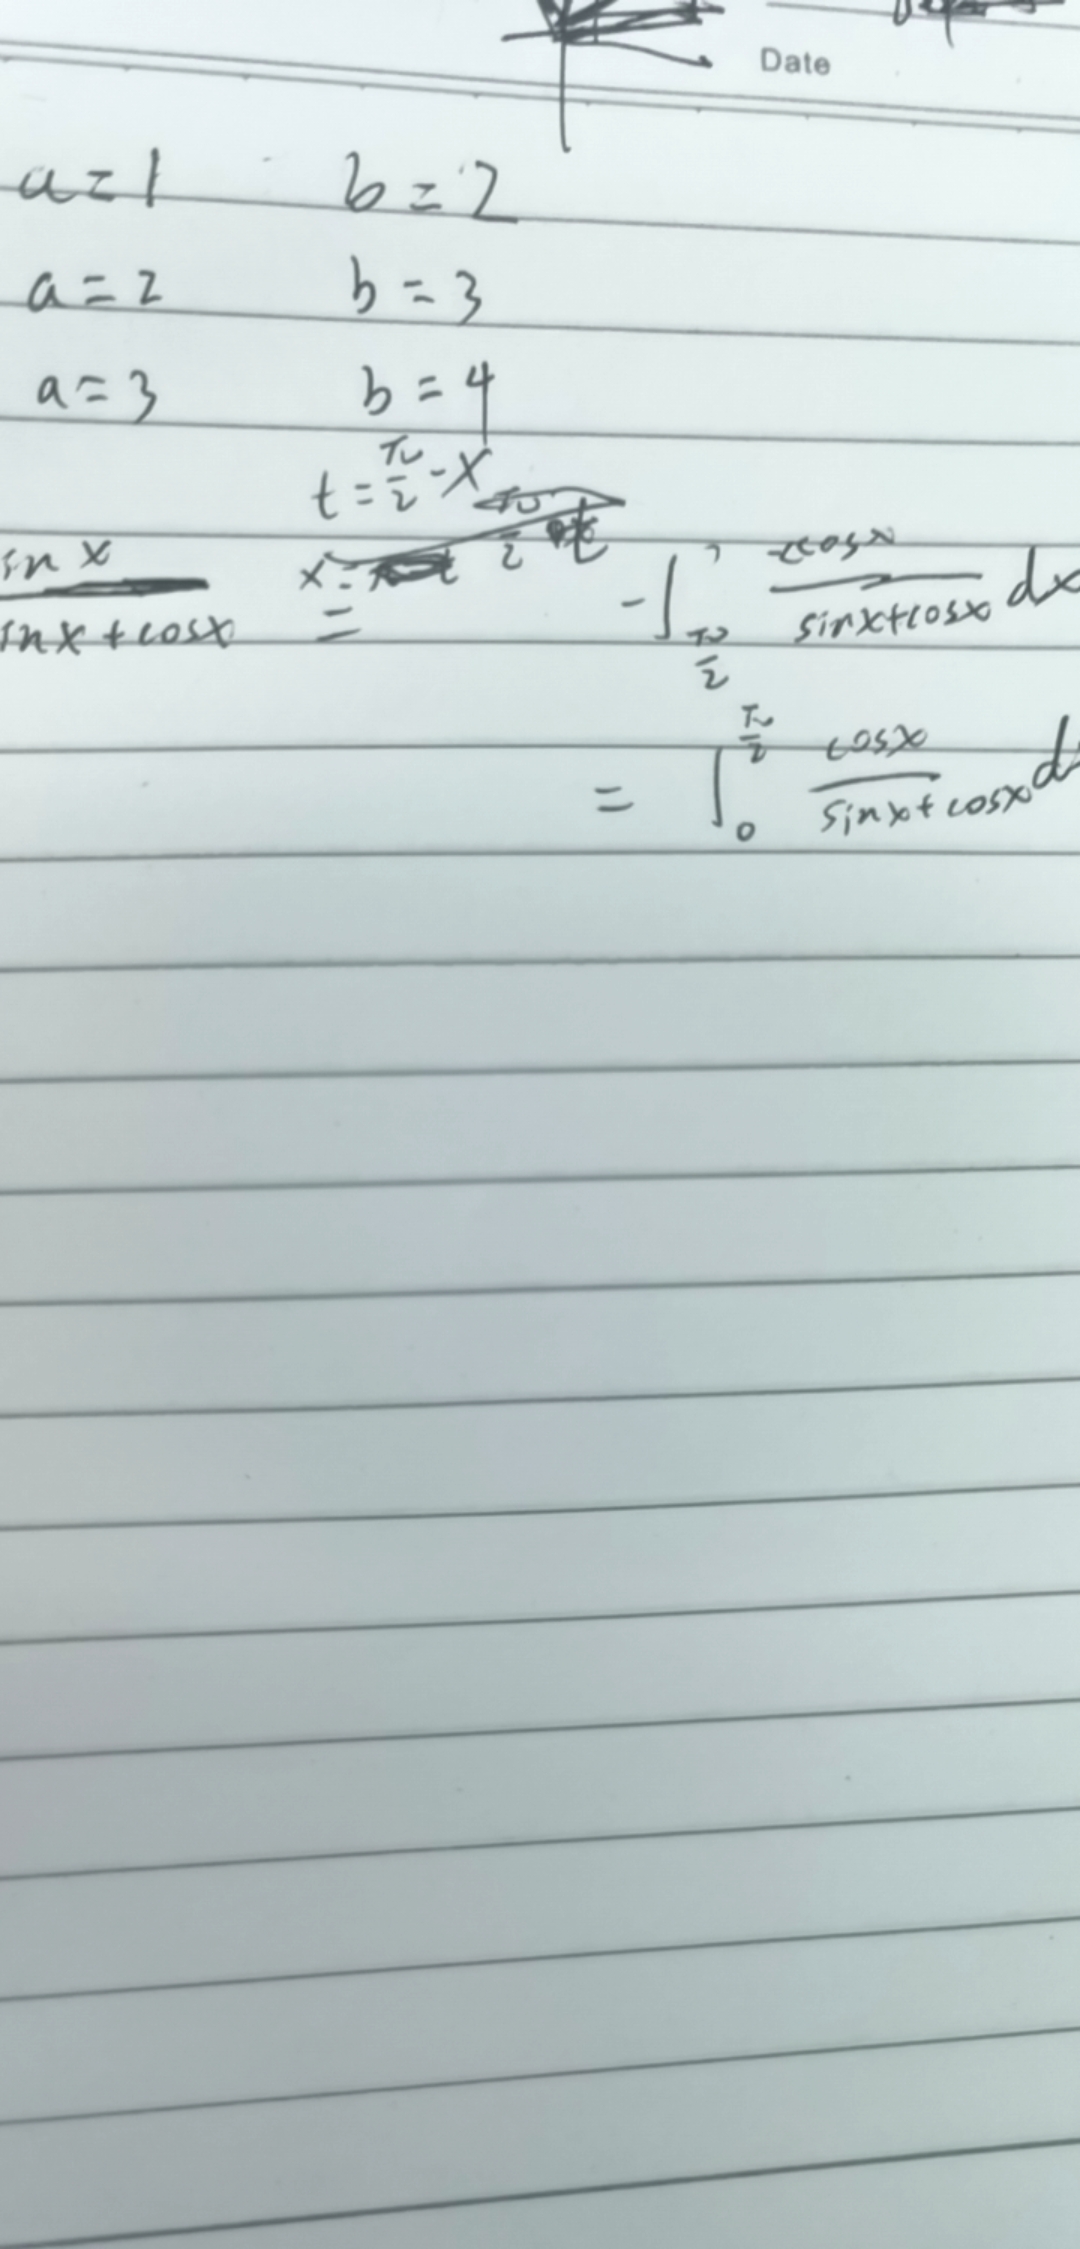 Date
a=1 b=2
a=2 b=3
a=3 b=4
t=π/2-x
sin x/sinx+cosx = -∫π/2 cosx/sinx+cosx dx
= ∫0 π/2 cosx/sinx+cosx d